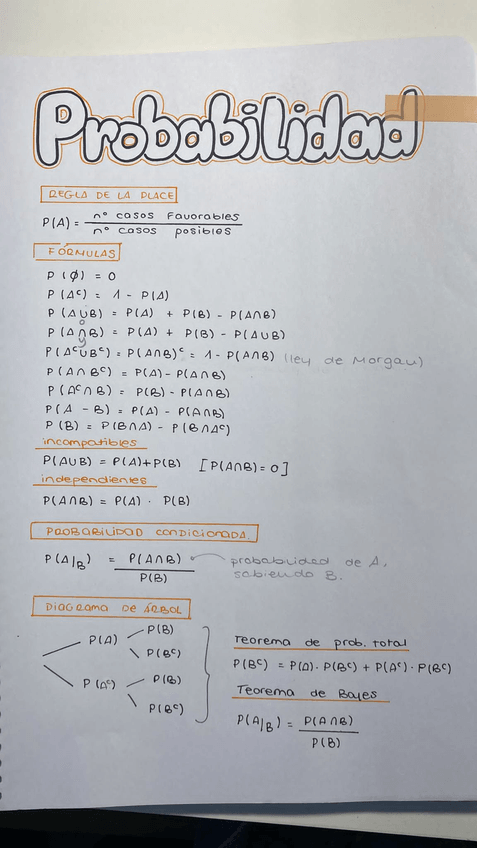 Probabilidad
REGLA DE LA PLACE
P(A) = nº casos favorables / nº casos posibles
FÓRMULAS
P(ϕ) = 0
P(Aᶜ) = 1 - P(A)
P(A∪B) = P(A) + P(B) - P(A∩B)
o
P(A∩B) = P(A) + P(B) - P(A∪B)
y
P(Aᶜ∪Bᶜ) = P(A∩B)ᶜ = 1 - P(A∩B) (ley de Morgau)
P(A∩Bᶜ) = P(A) - P(A∩B)
P(Aᶜ∩B) = P(B) - P(A∩B)
P(A - B) = P(A) - P(A∩B)
P(B) = P(B∩A) - P(B∩Aᶜ)
incompatibles
P(A∪B) = P(A)+P(B) [P(A∩B)=0]
independientes
P(A∩B) = P(A) · P(B)
PROBABILIDAD CONDICIONADA.
P(A/B) = P(A∩B) / P(B)
probabilidad de A,
sabiendo B.
DIAGRAMA DE ÁRBOL
P(A)
P(B)
P(Bᶜ)
P(Aᶜ)
P(B)
P(Bᶜ)
Teorema de prob. total
P(Bᶜ) = P(A)·P(Bᶜ) + P(Aᶜ)·P(Bᶜ)
Teorema de Bayes
P(A/B) = P(A∩B) / P(B)